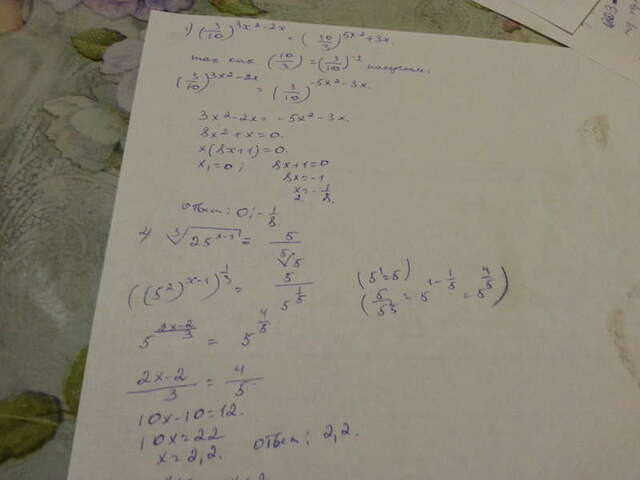 1) (3/10)^3x²-2x = (10/3)^5x²+3x.
так как (10/3) = (3/10)^-1 получим:
(3/10)^3x²-2x = (3/10)^-5x²-3x.
3x²-2x = -5x²-3x.
8x²+x=0.
x(8x+1)=0.
x₁=0; 8x+1=0
8x=-1
x₂=-1/8.
Ответ: 0; -1/8
2) ∛25^x-1 = 5/⁵√5
((5²)^x-1)^1/3 = 5/5^1/5 (5¹=5)
(5/5^1/5 = 5^1-1/5 = 5^4/5)
5^2x-2/3 = 5^4/5
2x-2/3 = 4/5
10x-10=12.
10x=22
x=2,2. Ответ: 2,2.